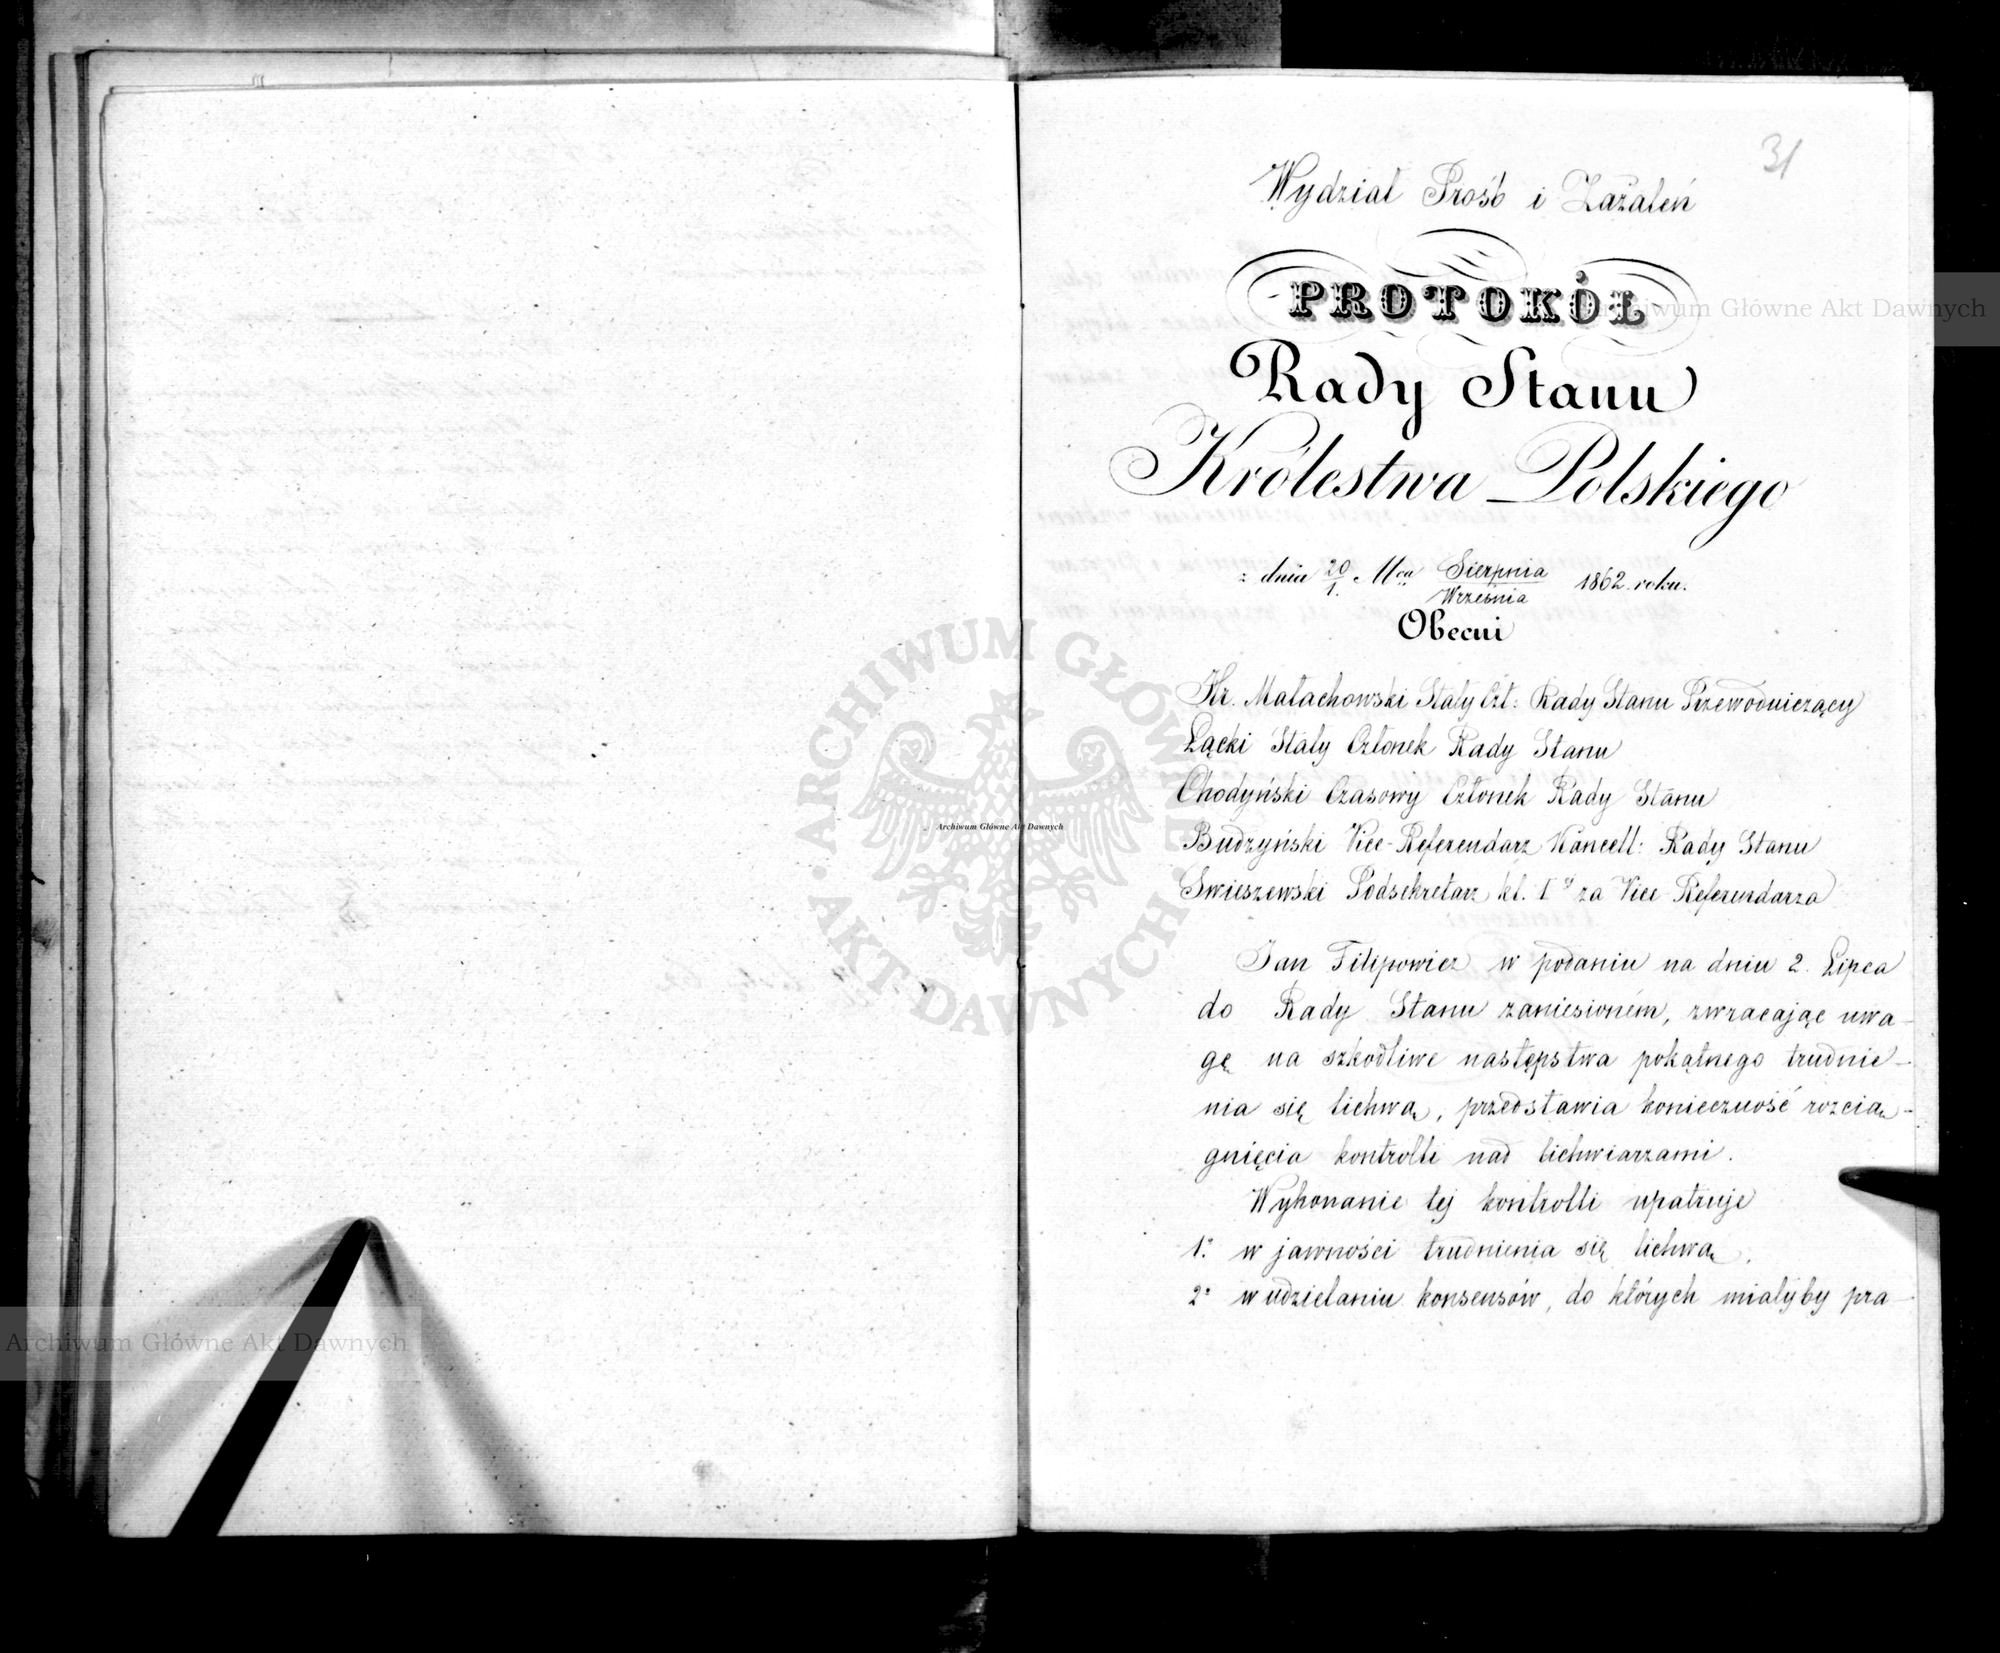 31
Wydział Prośb i Zażaleń
PROTOKÓŁ
Archiwum Główne Akt Dawnych
Rady Stanu
Królestwa Polskiego
z dnia 20/1. Mca Sierpnia/Września 1862 roku.
Obecni
Hr. Małachowski Stały Czł: Rady Stanu Przewodniczący
Łącki Stały Członek Rady Stanu
Chodyński Czasowy Członek Rady Stanu
Budzyński Vice-Referendarz Kancell: Rady Stanu
Swieszewski Podsekretarz kl. I za Vice Referendarza
Jan Filipowicz w podaniu na dniu 2. Lipca
do Rady Stanu zaniesioném, zwracając uwa-
gę na szkodliwe następstwa pokątnego trudnie-
nia się lichwą, przedstawia konieczność rozcią-
gnięcia kontrolli nad lichwiarzami.
Wykonanie tej kontrolli upatruje
1º w jawności trudnienia się lichwą,
2º w udzielaniu konsensów, do których miałyby pra-
ARCHIWUM GŁÓWNE AKT DAWNYCH
Archiwum Główne Akt Dawnych
Archiwum Główne Akt Dawnych